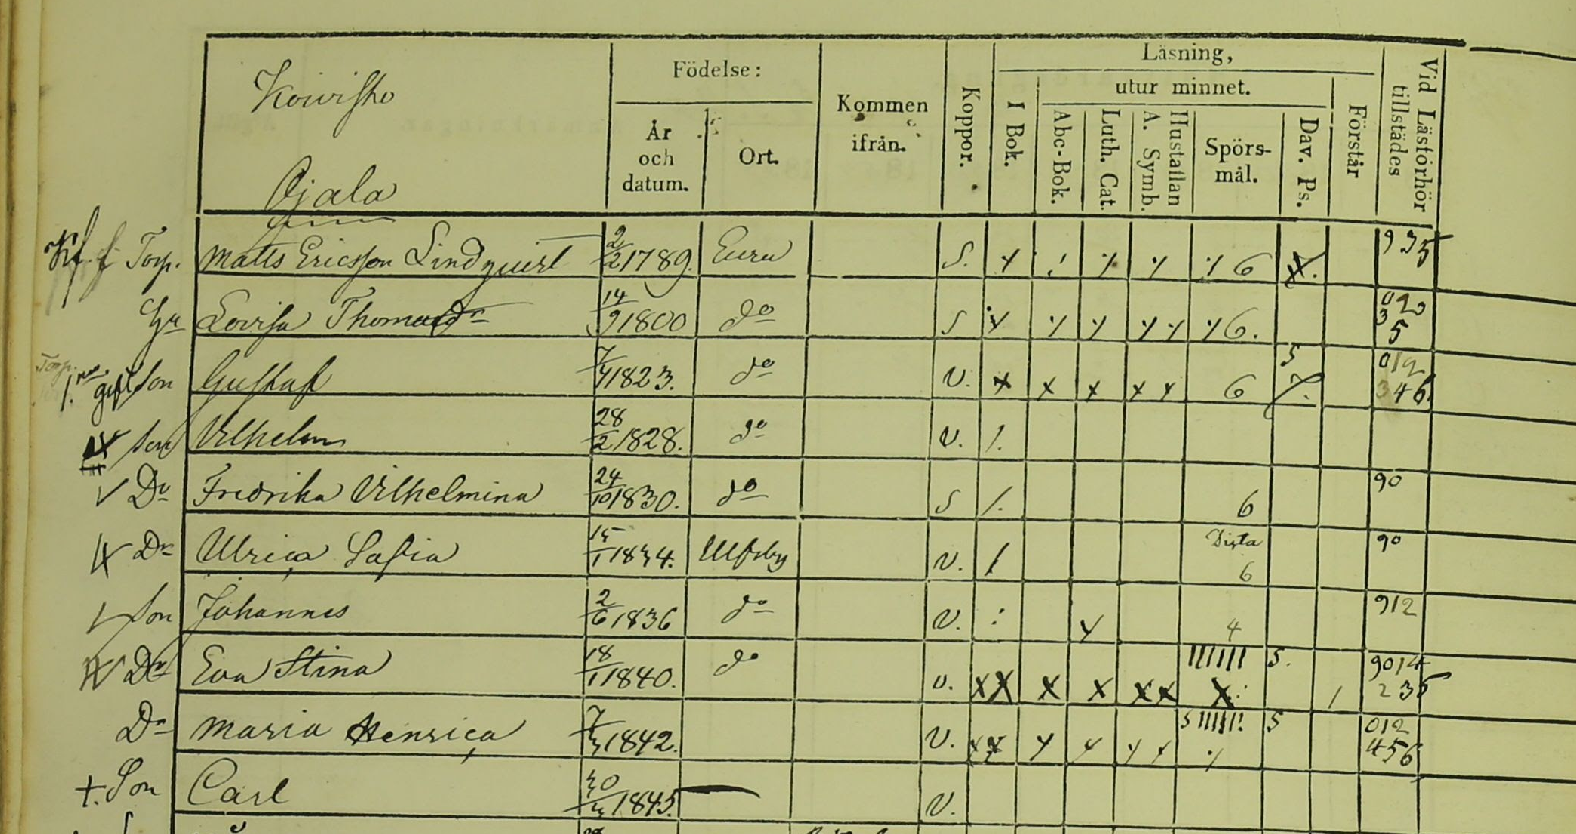 Koivisto
Ojala
Födelse:
År och datum.
Ort.
Kommen ifrån.
Koppor.
Läsning,
I Bok.
utur minnet.
Abc-Bok.
Luth. Cat.
Hustaflan A. Symb.
Spörs-mål.
Dav. Ps.
Förstår
Vid Läsförhör tillstädes
Torp. Matts Ericsson Lindqvist 2/2 1789. Eura S. 6 935
Hu Lovisa Thomasdr 14/9 1800 do S 6. 0 2 3 5
1. gift Son Gustaf 7/4 1823. do V. 6 5 012 346.
Son Vilhelm 28/2 1828. do V.
Dr Fredrika Vilhelmina 24/10 1830. do S 6 90
Dr Ulrica Safia 15/1 1834. Ulfsby V. 6 90
Son Johannes 2/6 1836 do V. 4 912
Dr Eva Stina 18/1 1840. do v. 5. 9014 235
Dr Maria Henrica 7/3 1842. V. 5 5 012 456
+ Son Carl 30/3 1845 V.